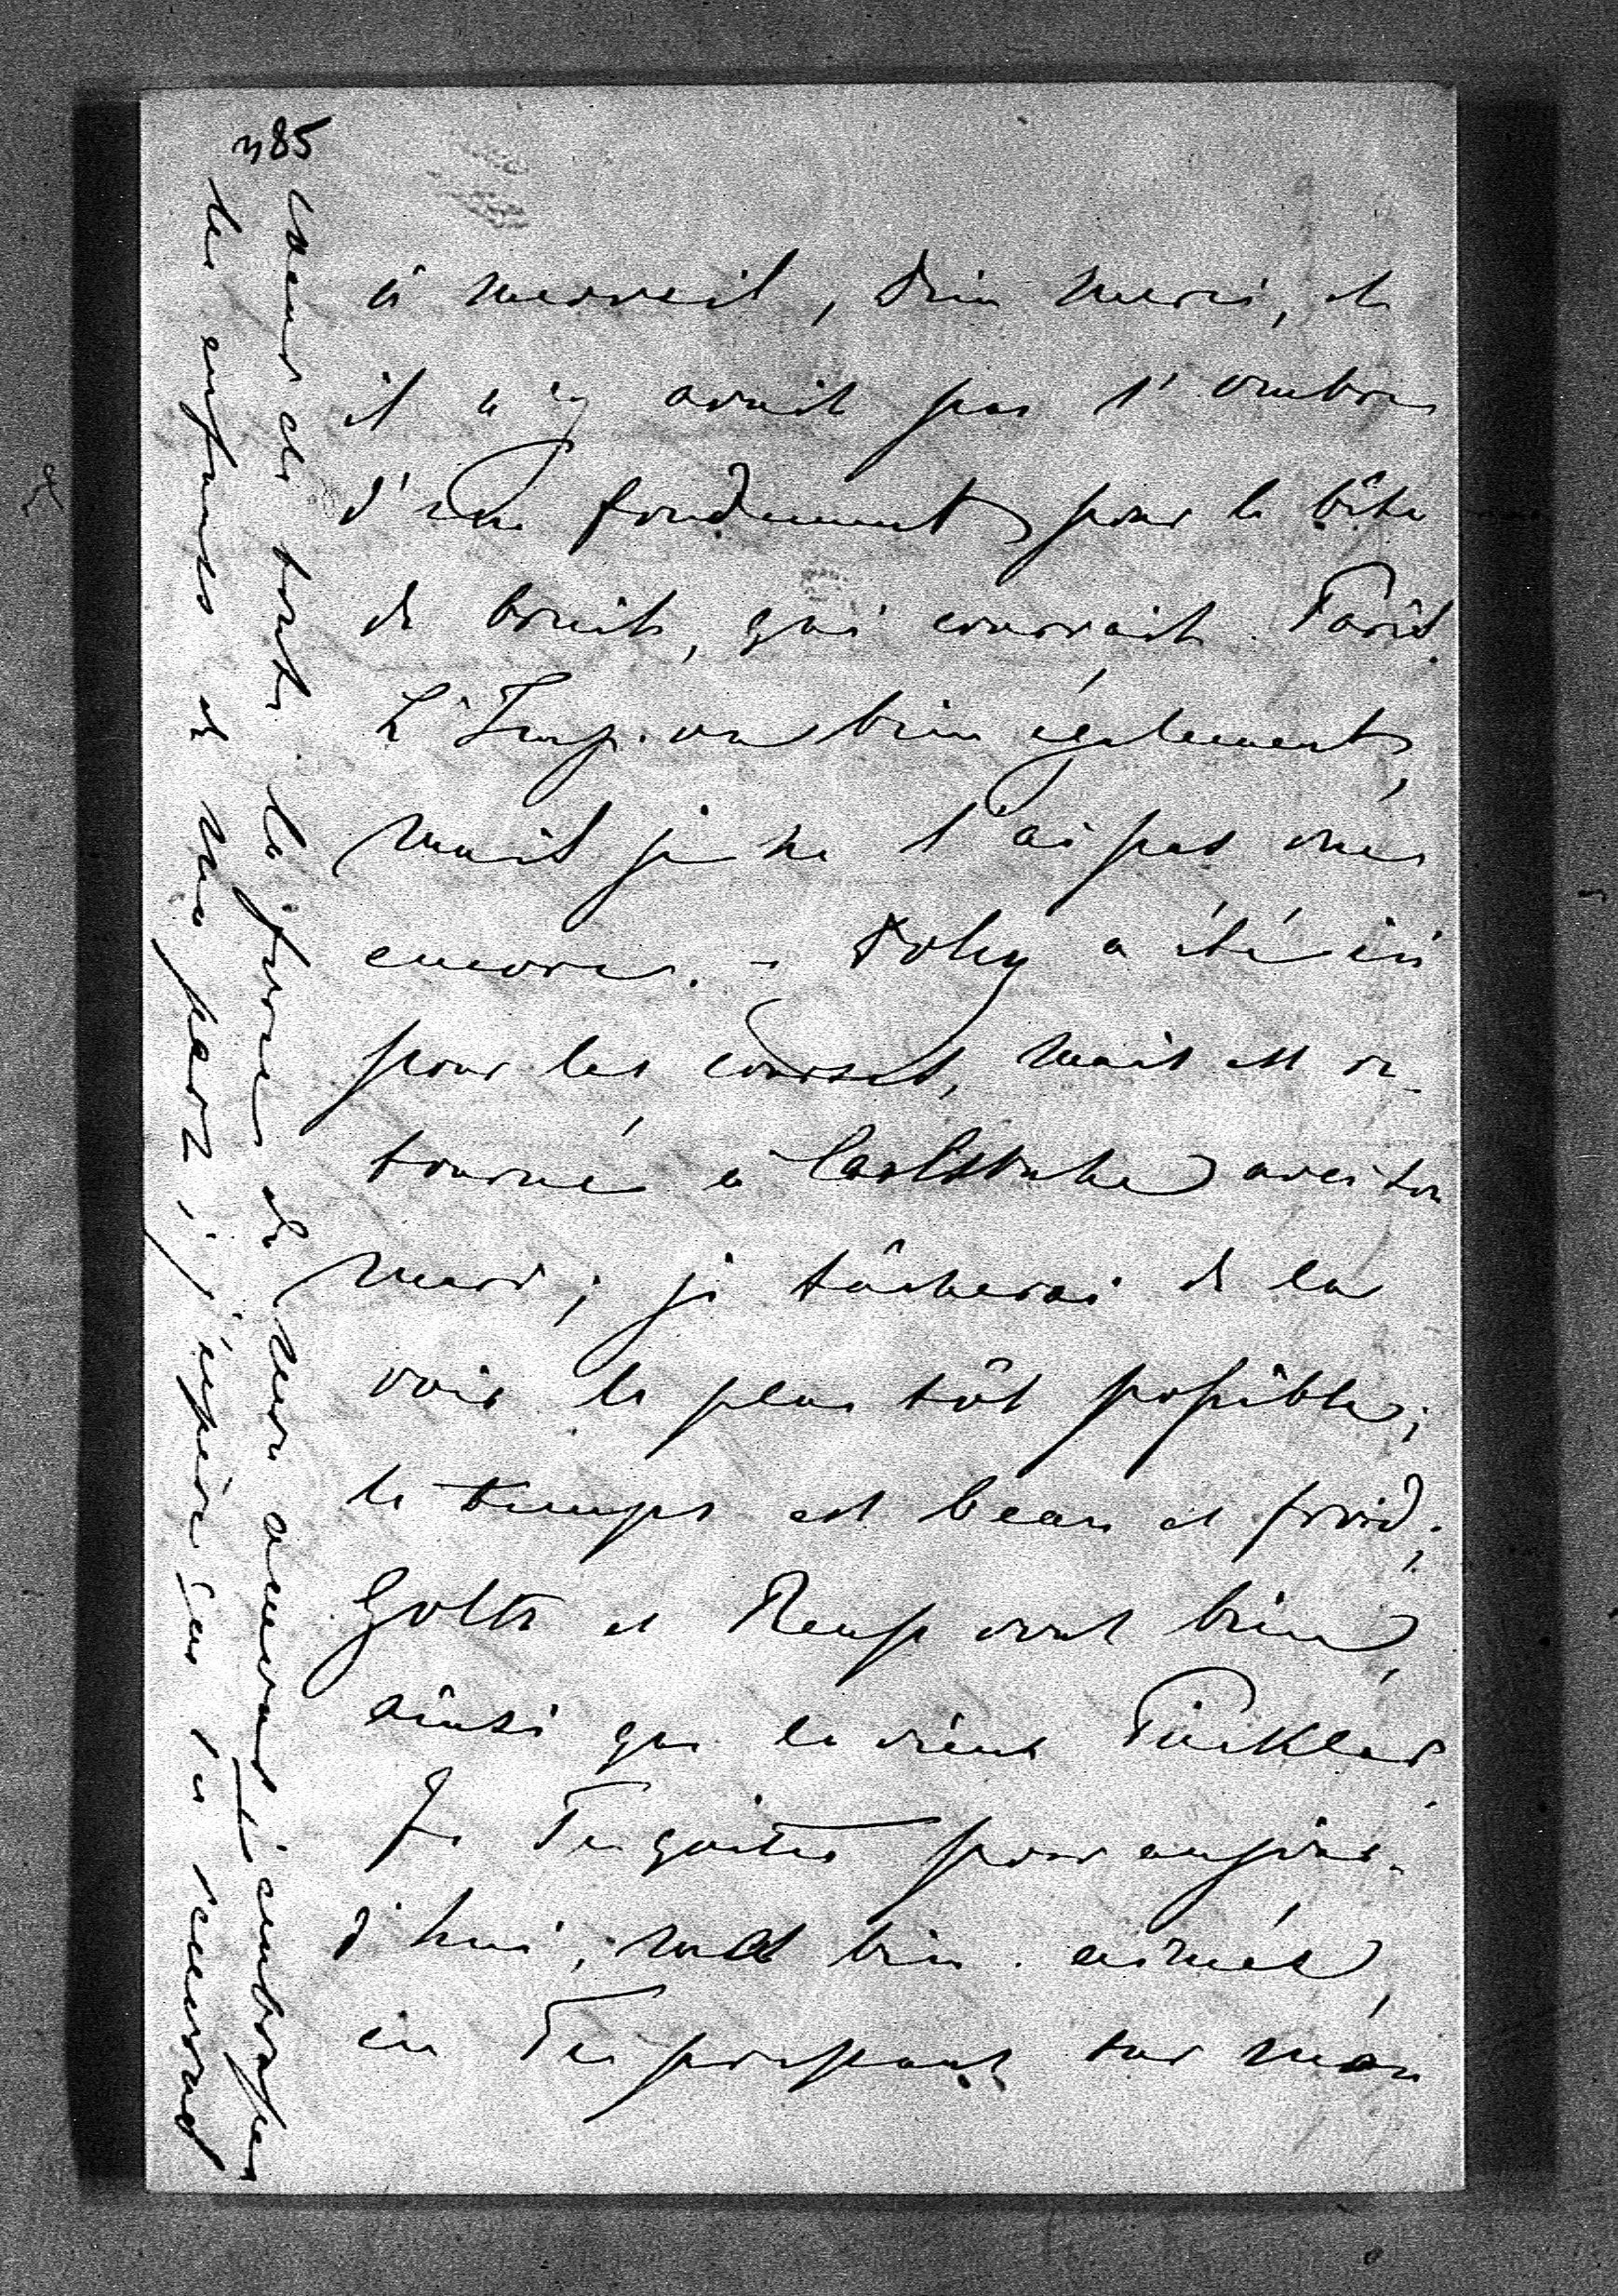 385
à merveil, Dieu merci, et
il n'y avait pas l'ombre
d'une fondement pour le bête
de bruit, qui courrait Paris.
L'Imp. va bien également,
mais je ne l'ai pas vue
encore. - Dolly a été ici
pour les courses, mais est re-
tourné à Carlsruhe avec son
mari; je tâcherai de la
voir le plus tôt possible;
le temps est beau et froid;
Goltz et Reuss vont bien,
ainsi que le vieux Pückler.
Je Te quitte pour aujour-
d'hui, ma bien aimée,
en Te pressant sur mon
coeur de toute la force de mon amour! embrasse
les enfants de ma part, j'espère que tu recevras